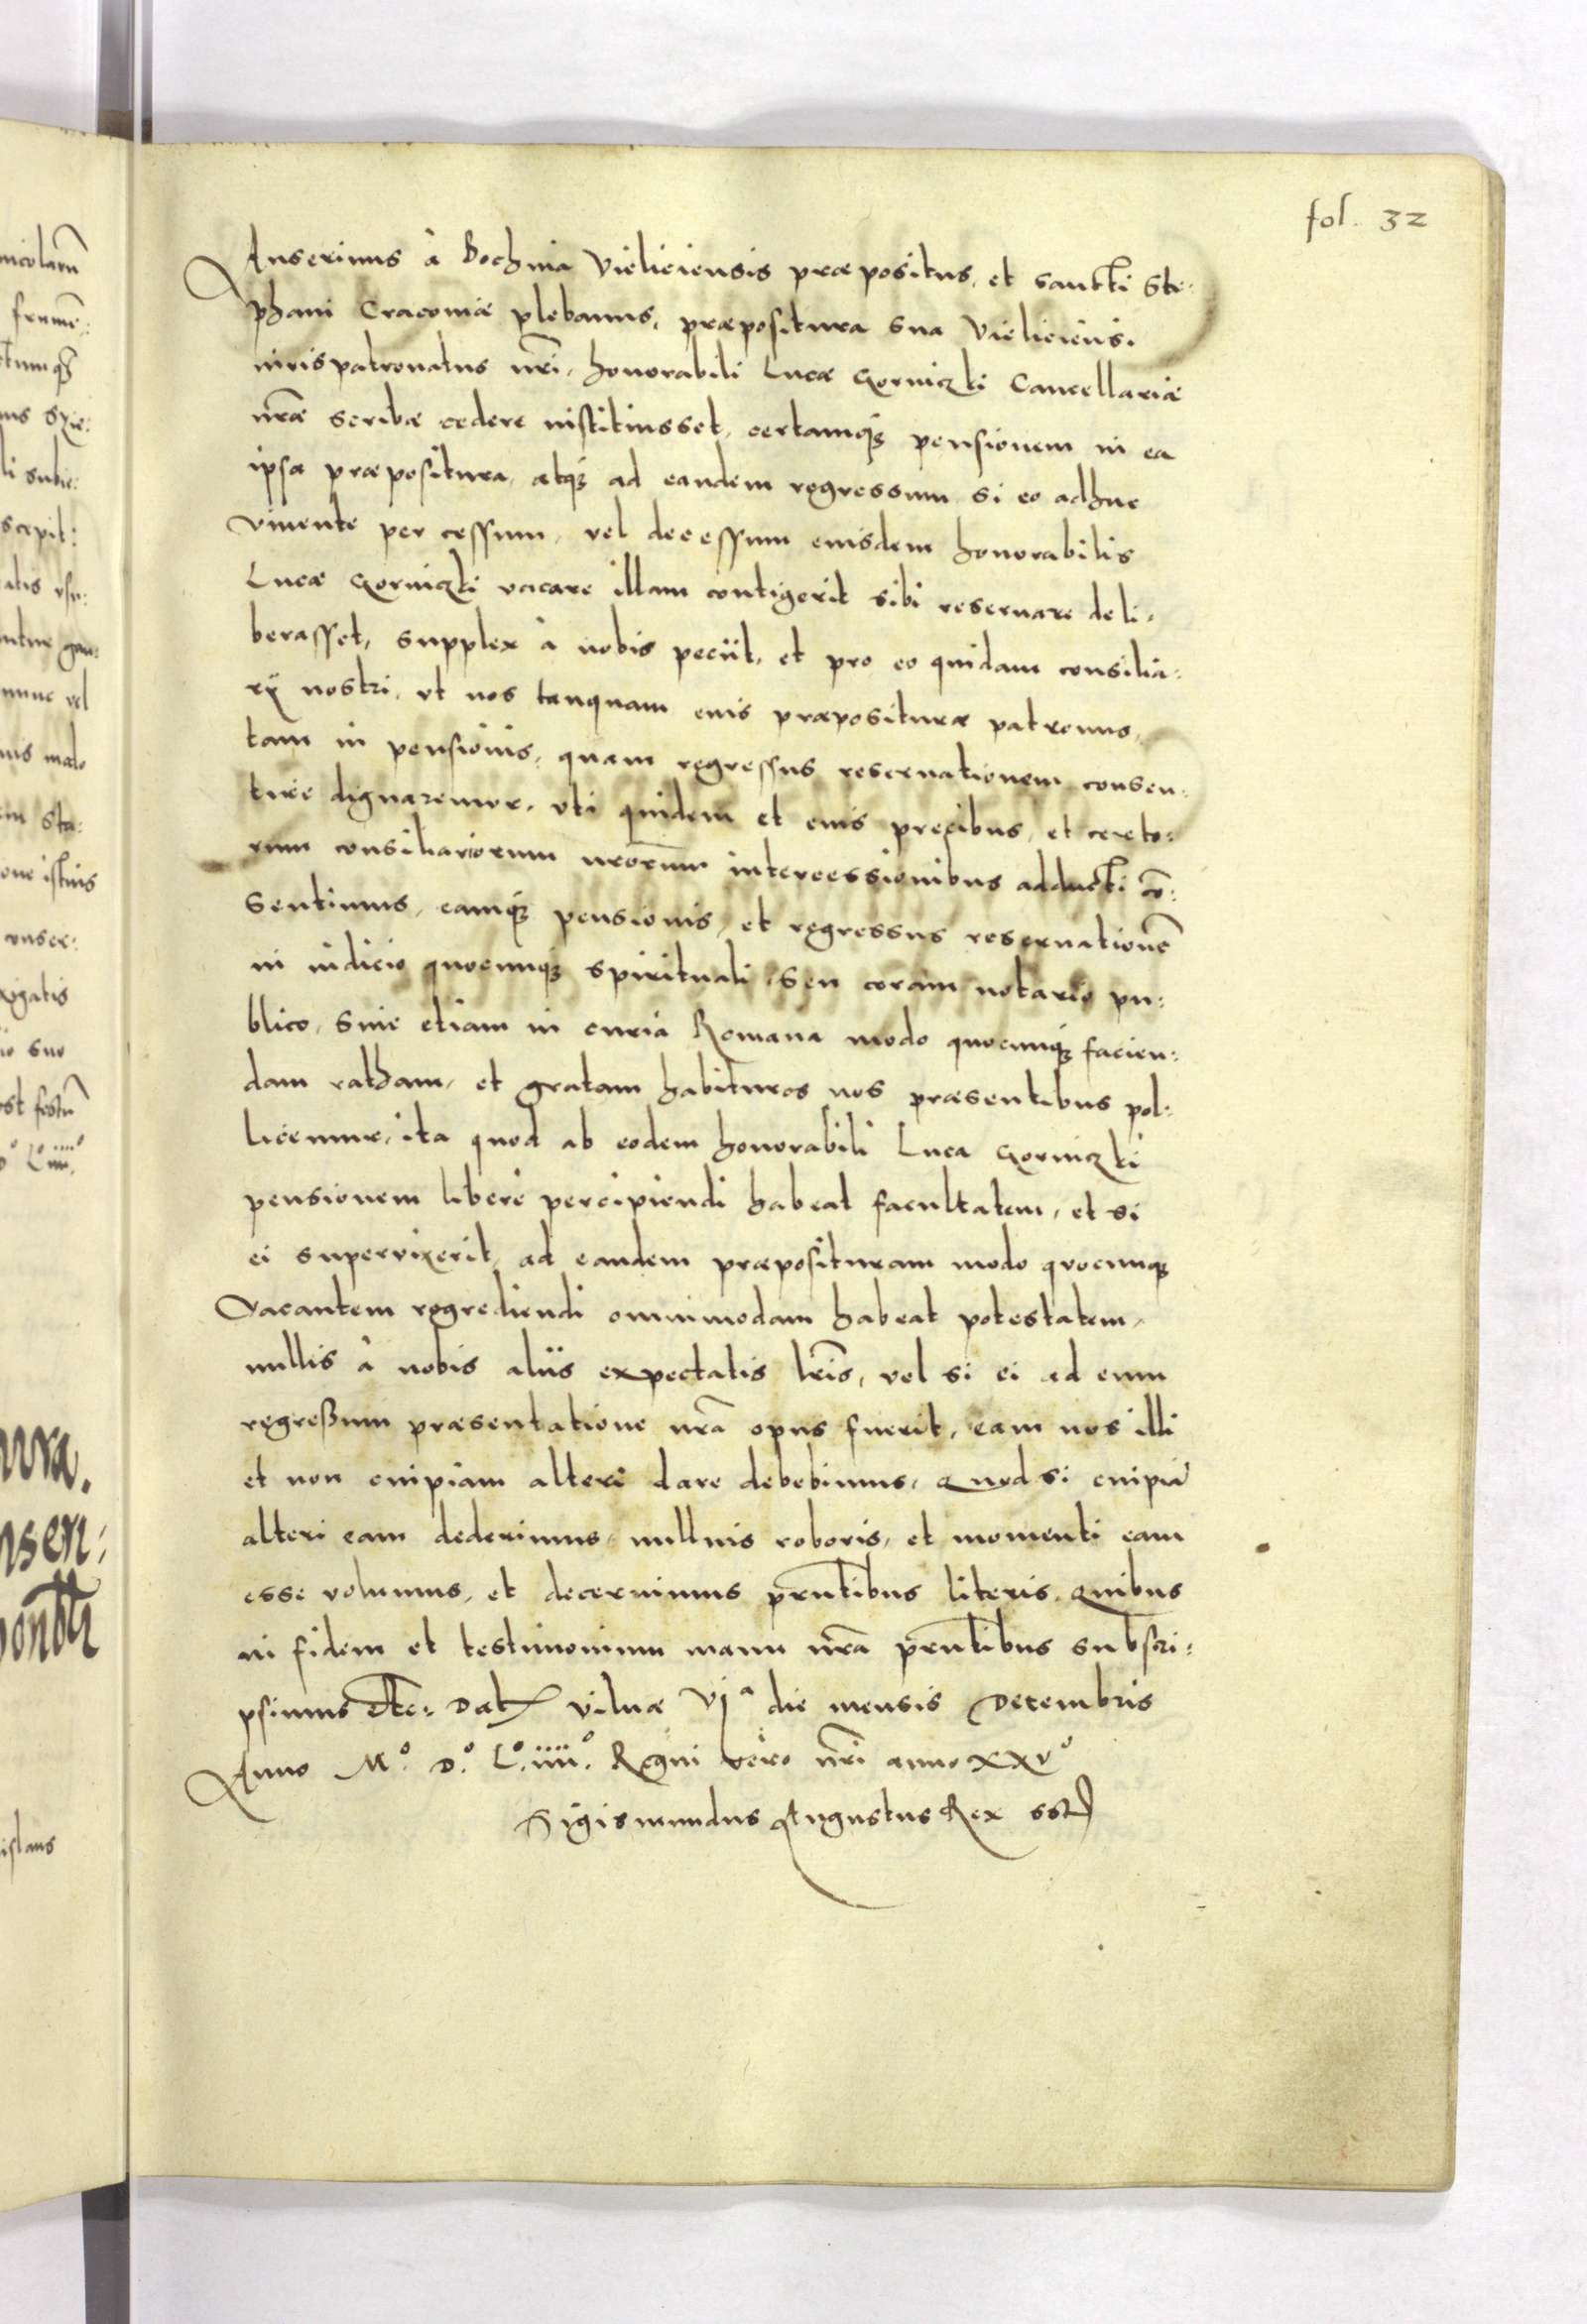 fol. 32
Anserinus à Bochnia Vieliciensis præpositus, et sancti Ste:
phani Cracoviæ plebanus, præpositura sua Vieliciensi
iuris patronatus nr̃i, honorabili Lucæ Gorniczki Cancellariæ
nr̃æ scribæ cedere instituisset, certamq3 pensionem in ea
ipsa præpositura, atq3 ad eandem regressum si eo adhuc
vivente per cessum, vel decessum eiusdem honorabilis
Lucæ Gorniczki vacare illam contigerit sibi reservare deli:
berasset, supplex à nobis peciit, et pro eo quidam consilia:
rÿ nostri, ut nos tanquam eius præposituræ patronus,
tam in pensionis, quam regressus reservationem consen:
tire dignaremur, uti quidem et eius precibus, et certo:
rum consiliariorum nr̃orum intercessionibus adducti cõ:
sentimus, eamq3 pensionis, et regressus reservationẽ
in iudicio quocunq3 spirituali, seu coram notario pu:
blico, sive etiam in curia Romana modo quocunq3 facien:
dam ratham, et gratam habituros nos præsentibus pol:
licemur, ita quod ab eodem honorabili Luca Gorniczki
pensionem liberè percipiendi habeat facultatem, et si
ei supervixerit, ad eandem præposituram modo quocunq3
vacantem regrediendi omnimodam habeat potestatem,
nullis à nobis aliis expectatis lr̃is, vel si ei ad eum
regreßum præsentatione nr̃a opus fuerit, eam nos illi
et non cuipiam alteri dare debebimus, Quod si cuipiã
alteri eam dederimus, nullius roboris, et momenti eam
esse volumus, et decernimus pr̃ntibus literis, Quibus
in fidem et testimonium manu nr̃a pr̃ntibus subscri:
psimus etc: Dat Vilnæ Vjª die mensis Decembris
Anno Mº. Dº. Lº. iiiiº. Regni vero nr̃i anno XXVº
Sigismundus Augustus Rex sst